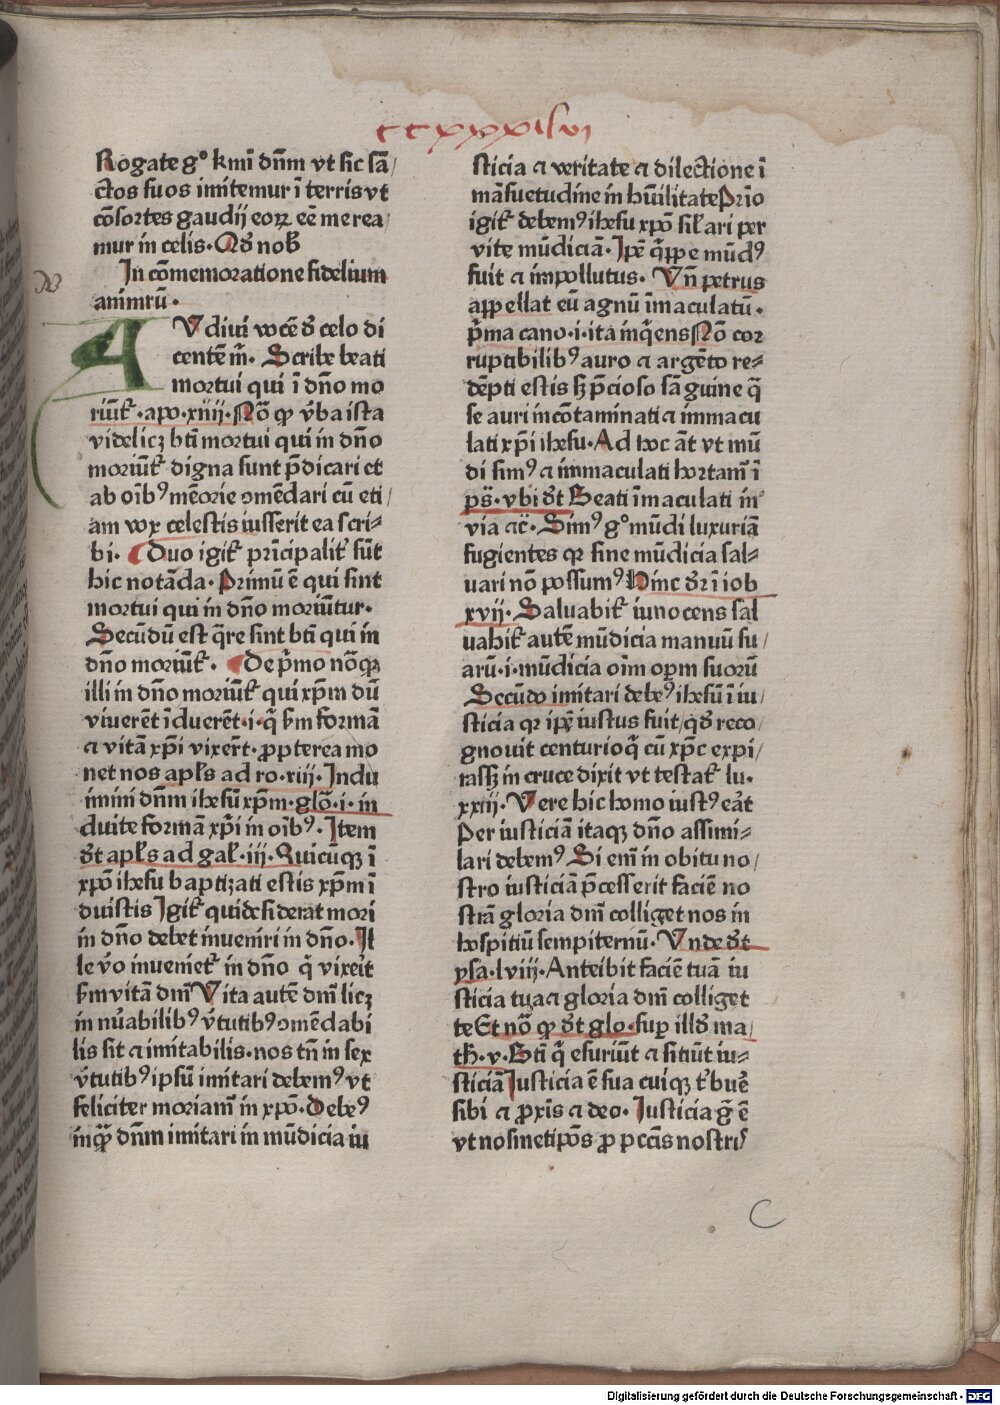 ccxxxxlvi
Rogate gͦ kmi᷑ dn̄m vt sic sā/
ctos suos imitemur ī terris vt
cōsortes gaudij eoꝝ eē merea/
mur in celis. Qd̕ nob̕
In cōmemoratione fidelium
animrū.
AVdiui vocē d̕ celo di
centē m̄. Scribe beati
mortui qui ī dn̄o mo
riūt᷑.apo.xiiij. Nō ꝙ v̄ba ista
videlicꝫ bt̄i mortui qui in dn̄o
moriūt᷑ digna sunt p̄dicari et
ab oīb⁹ mēorie ꝯmēdari cū eti/
am vox celestis iusserit ea scri-
bi. Duo igit᷑ prīcipalit᷑ sūt
hic notāda. Primū ē qui sint
mortui qui in dn̄o moriūtur.
Secūdū est q̄re sint bt̄i qui in
dn̄o moriūt᷑. De p̄mo nōꝙ
illi in dn̄o moriūt᷑ qui xp̄m dū
viuerēt īduerēt.i.q̄ ẜm formā
⁊ vitā xp̄i vixer̄t. ꝓpterea mo
net nos apl̄s ad ro.xiij. Indu
imini dn̄m ihesū xp̄m.glō.i.in
duite formā xp̄i in oīb⁹. Item
d̕t apl̄s ad gal̕.iij. Quicūqꝫ ī
xp̄o ihesu baptizati estis xp̄m ī
duistis Igit᷑ qui desiderat mori
in dn̄o debet inueniri in dn̄o. Il
le v̄o inueniet᷑ in dn̄o q̄ vixe᷑it
ẜm vitā dn̄i Vita autē dn̄i licꝫ
in nu᷑abilib⁹ v̕tutib⁹ ꝯmēdabi
lis sit ⁊ imitabilis.nos tn̄ in sex
v̕tutib⁹ ipsū imitari debem⁹ vt
feliciter moriam᷑ in xp̄o. Debe⁹
inqͣꝫ dn̄m imitari in mūdicia iu
sticia ⁊ veritate ⁊ dilectione ī
māsuetudine in hūilitate Prīo
igit᷑ debem⁹ ihesu xp̄o sil̕ari per
vite mūdiciā. Ip̄e q̄ppe mūd⁹
fuit ⁊ impollutus. Vn̄ petrus
appellat eū agnū īmaculatū.
p̄ma cano.i.ita inq̄ens Nō cor
ruptibilib⁹ auro ⁊ argēto re-
dēpti estis sꝫ p̄cioso sāguine q̄
se auri incōtaminati ⁊ immacu
lati xp̄i ihesu. Ad hoc āt vt mū
di sim⁹ ⁊ immaculati hortam᷑ ī
ps̄.vbi d̕t Beati īmaculati in
via ⁊c̄. Sim⁹ gͦ mūdi luxuriā
fugientes qꝛ sine mūdicia sal-
uari nō possum⁹ Hinc d̕r ī iob
xvij. Saluabit᷑ innocens sal
uabit᷑ autē mūdicia manuū su/
arū.i.mūdicia oīm oꝑm suorū
Secūdo imitari debe⁹ ihesū ī iu/
sticia qꝛ ip̄e iustus fuit/qd̕ reco/
gnouit centurio q̄ cū xp̄c expi/
rassꝫ in cruce dixit vt testat᷑ lu.
xxiij. Vere hic homo iust⁹ e᷑at
Per iusticiā itaqꝫ dn̄o assimi-
lari debem⁹ Si em̄ in obitu no/
stro iusticiā p̄cesserit faciē no
strā gloria dn̄i colliget nos in
hospitiū sempiternū. Vnde d̕t
ysa.lviij. Anteibit faciē tuā iu
sticia tua ⁊ gloria dn̄i colliget
te Et nō ꝙ d̕t glo.suꝑ illd̕ ma/
th̕.v. Bt̄i q̄ esuriūt ⁊ sitiūt iu-
sticiā Iusticia ē sua cuiqꝫ t᷑buē
sibi ⁊ ꝓxīs ⁊ deo. Iusticia g̕ ē
vt nosmetip̄os ꝓ pcc̄is nostris
Digitalisierung gefördert durch die Deutsche Forschungsgemeinschaft - DFG